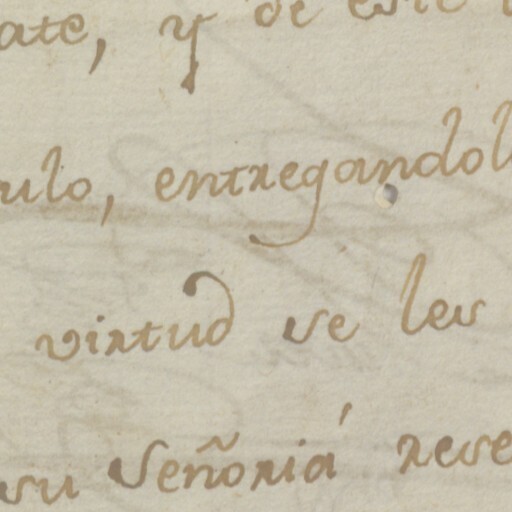 ate, y de este
ulo, entregandol
virtud se les
su Señoriá rese